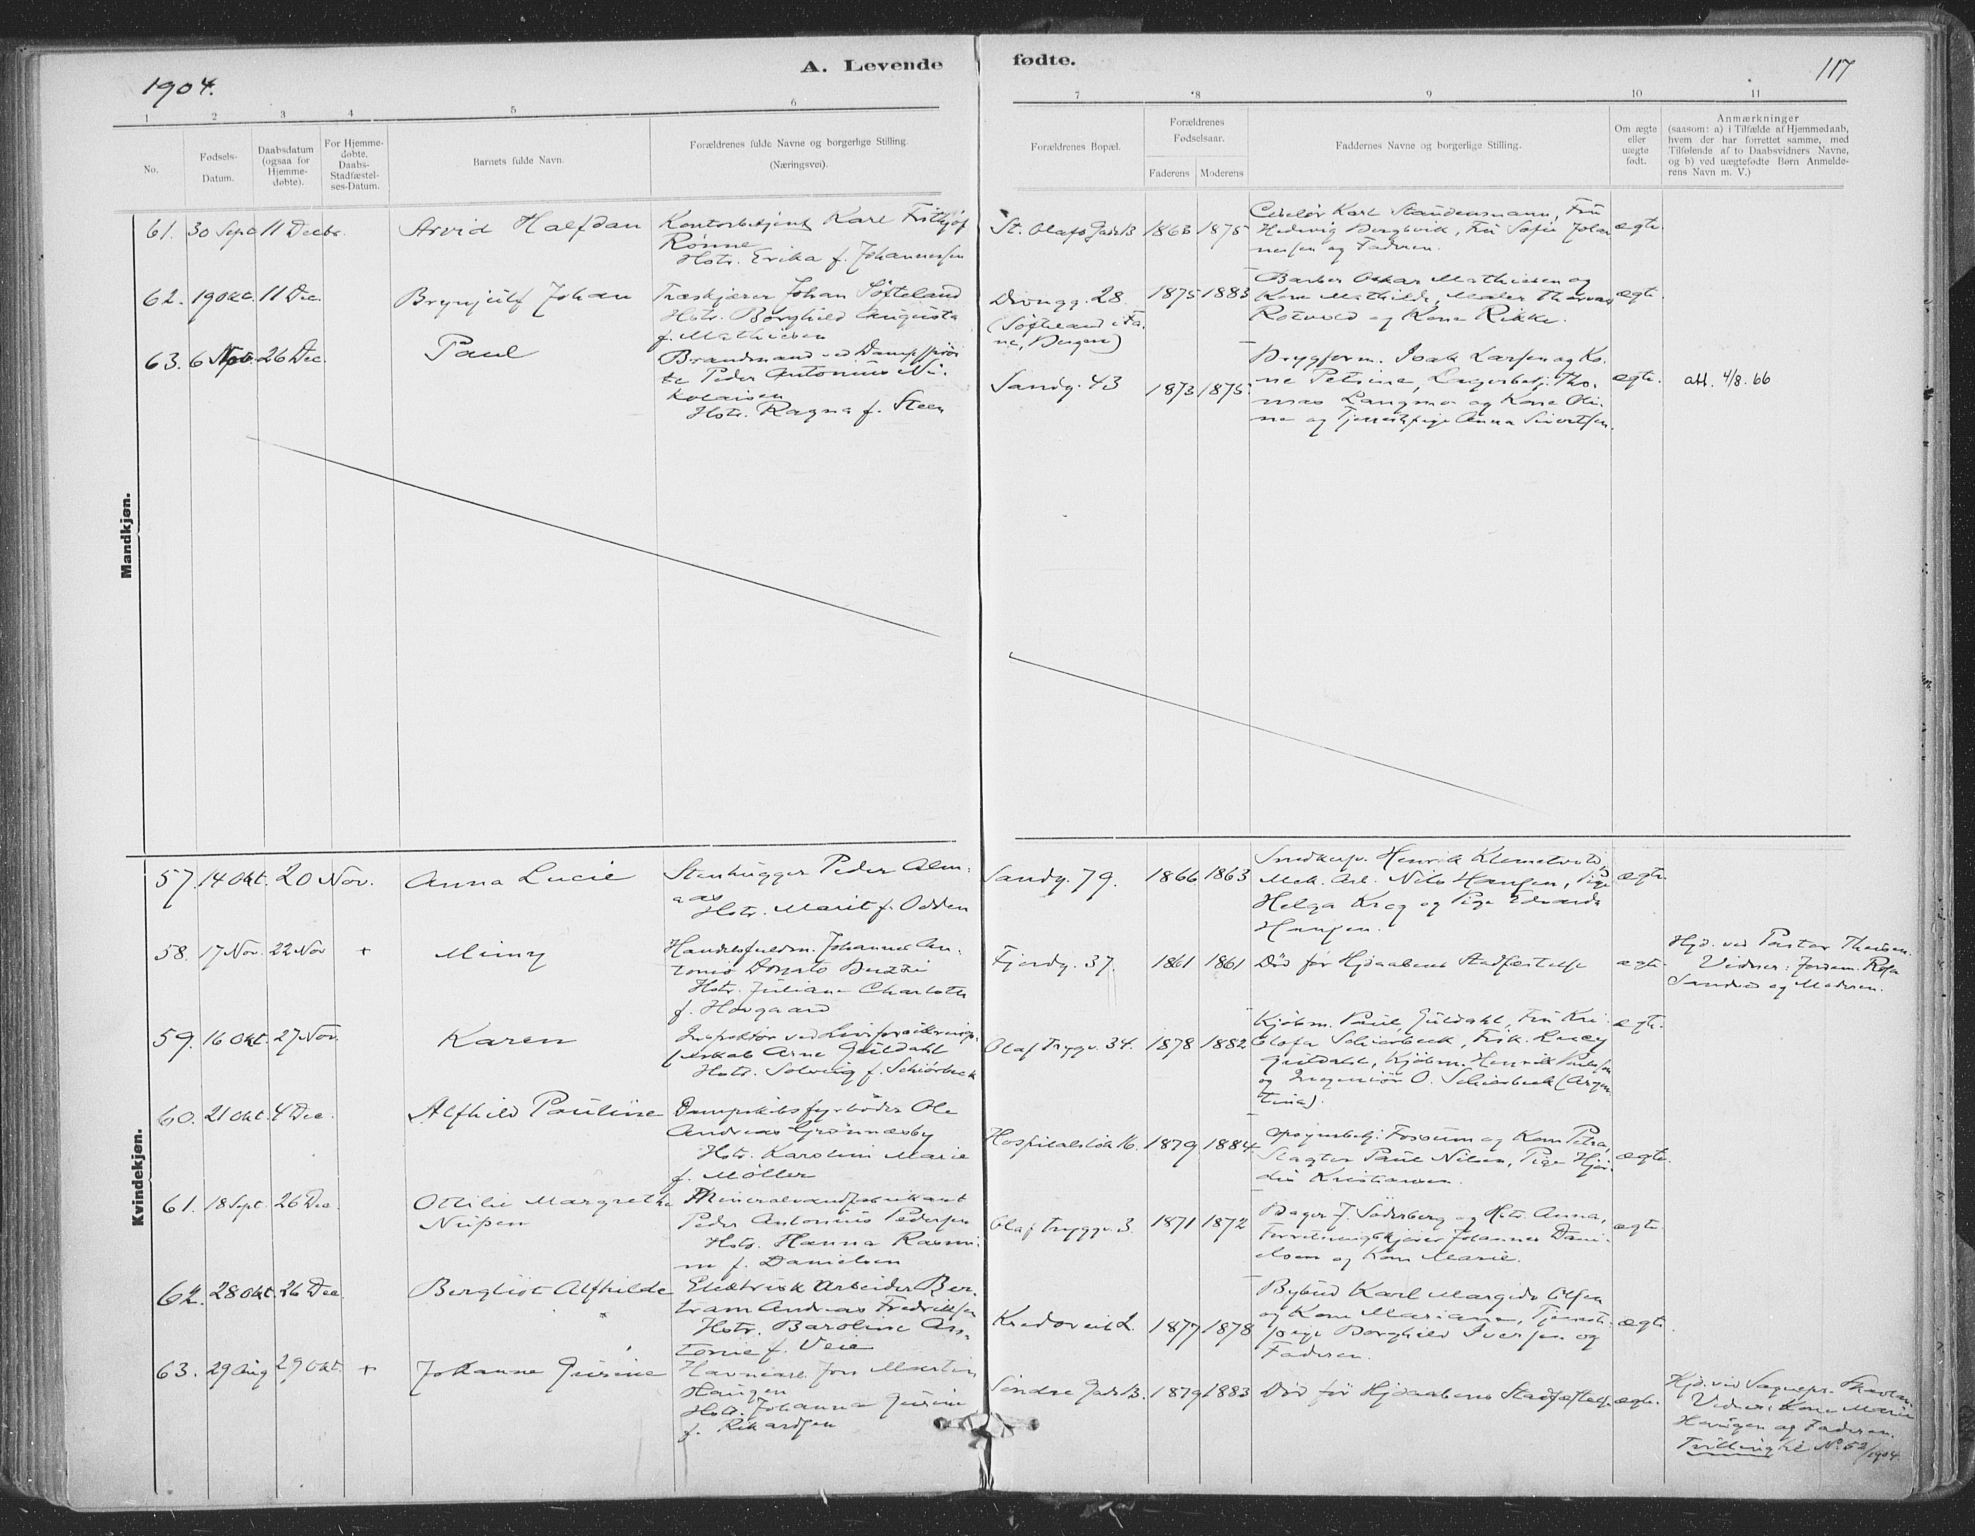 1904.
A. Levende fødte.
117
1 2 3 4 5 6 7 8 9 10 11
No.
Fødsels-Datum.
Daabsdatum (ogsaa for Hjemmedøbte).
For Hjemmedøbte, Daabs-Stadfæstelses-Datum.
Barnets fulde Navn.
Forældrenes fulde Navne og borgerlige Stilling.
(Næringsvei).
Forældrenes Bopæl.
Forældrenes Fødselsaar.
Faderens Moderens
Faddernes Navne og borgerlige Stilling.
Om ægte eller uægte født.
Anmærkninger
(saasom: a) i Tilfælde af Hjemmedaab, hvem der har forrettet samme, med Tilføiende af to Daabsvidners Navne, og b) ved uægtefødte Børn Anmelderens Navn m. V.)
Mandkjøn.
61. 30 Sept 11 Decbr. Arvid Halfdan
Kontorbetjent Karl Frithjof
Rønne
Hstr. Erika f. Johannessen
St. Olafs Gade 13 1863 1875
Karl Staudensmann, Frü
Hedevig Bergsvik, Frü Sofie Johannessen og Faderen.
ægte
62. 19 Okt. 11 Dec. Brynjülf Johan
Træskjærer Johan Søfteland
Hstr. Borghild Augusta
f. Mathiesen
Drongg. 28.
(Søfteland i Fane, Bergen)
1875 1883
Barber Oskar Mathiesen og
Kone Mathilde, Maler Thorvald
Rotvold og Kone Rikke.
ægte.
63. 6 Nov. 26 Dec. Paul
Brandmand ved Dampsprøite Peder Antonius Nikolaisen
Hstr. Ragna f. Steen
Sandg. 43 1873 1875
Brygform. Isak Larsen og Kone Petrine, Lagerbetj. Thomas Langmo og Kone Oline og Tjenestepige Anna Sivertsen.
ægte. att. 4/8. 66
Kvindekjøn.
57. 14 Okt. 20 Nov. Anna Lucie
Stenhugger Peder Almaas
Hstr. Marit f. Odden
Sandg. 79. 1866 1863
Snedkersv. Henrik Klemetvold,
Mek. Arb. Nils Haugen, Pige
Helga Kreg og Pige Edvarda
Haugen.
ægte
58. 17 Nov. 22 Nov + Mimy
Handelsfuldm. Johannes Antonio Donato Buzzi
Hstr. Juliane Charlotte
f. Hovgaard
Fjordg. 37. 1861 1861
Død før Hjdaabens Stadfæstelse
ægte
Hjd. ved Pastor Thaulow.
Vidner: Jordem. Rosa
Sandvig og Moderen.
59. 16 Okt. 27 Nov. Karen
Inspektør ved Livsforsikringsselskab Arne Güldahl
Hstr. Solveig f. Schiørbeck
Olaf Trygv. 34. 1878 1882
Kjøbm. Paul Güldahl, Frü Kristofa Schiørbeck, Frk. Lucy
Güldahl, Kjøbm. Henrik Poulsson
og Ingeniør O. Schiørbeck (Argentina).
ægte.
60. 21 Okt. 4 Dec. Alfhild Pauline
Dampskibsfyrbøder Ole
Andreas Grønnesby
Hstr. Karoline Marie
f. Møller
Hospitalsløk. 16. 1879 1884
Fossum og Kone Petra,
Slagter Paul Nilsen, Pige Hjørdis Kristiansen.
ægte
61. 18 Sept. 26 Dec. Ottilie Margrethe
Neissen
Mineralvandfabrikant
Peder Antonius Pedersen
Hstr. Hanna Rasmine f. Danielsen
Olaf Tryggv. 3. 1871 1872
Bager J. Søderberg og Hstr. Anna,
Forretningskjører Johannes Danielsen og Kone Marie.
ægte
62. 28 Okt. 26 Dec. Bergliot Alfhilde
Elektrisk Arbeider Bertram Andreas Fredriksen
Hstr. Baroline Antonie f. Veie
Kredsveita 2. 1877 1878
Bybud Karl Margido Olsen
og Kone Mariane, Tjenestepige Borghild Iversen og
Faderen.
ægte
63. 29 Aug 29 Okt. + Johanne Jürine
Havnearb. Jon Martin
Haugen
Hstr. Johanna Jürine
f. Rikardsen
Sindre Gade 13. 1879 1883
Død før Hjdaabens Stadfæstelse
ægte.
Hjd. ved Sognepr. Thaulow
Vidner: Kone Marie
Haugen og Faderen.
Tvilling til No. 52/1904